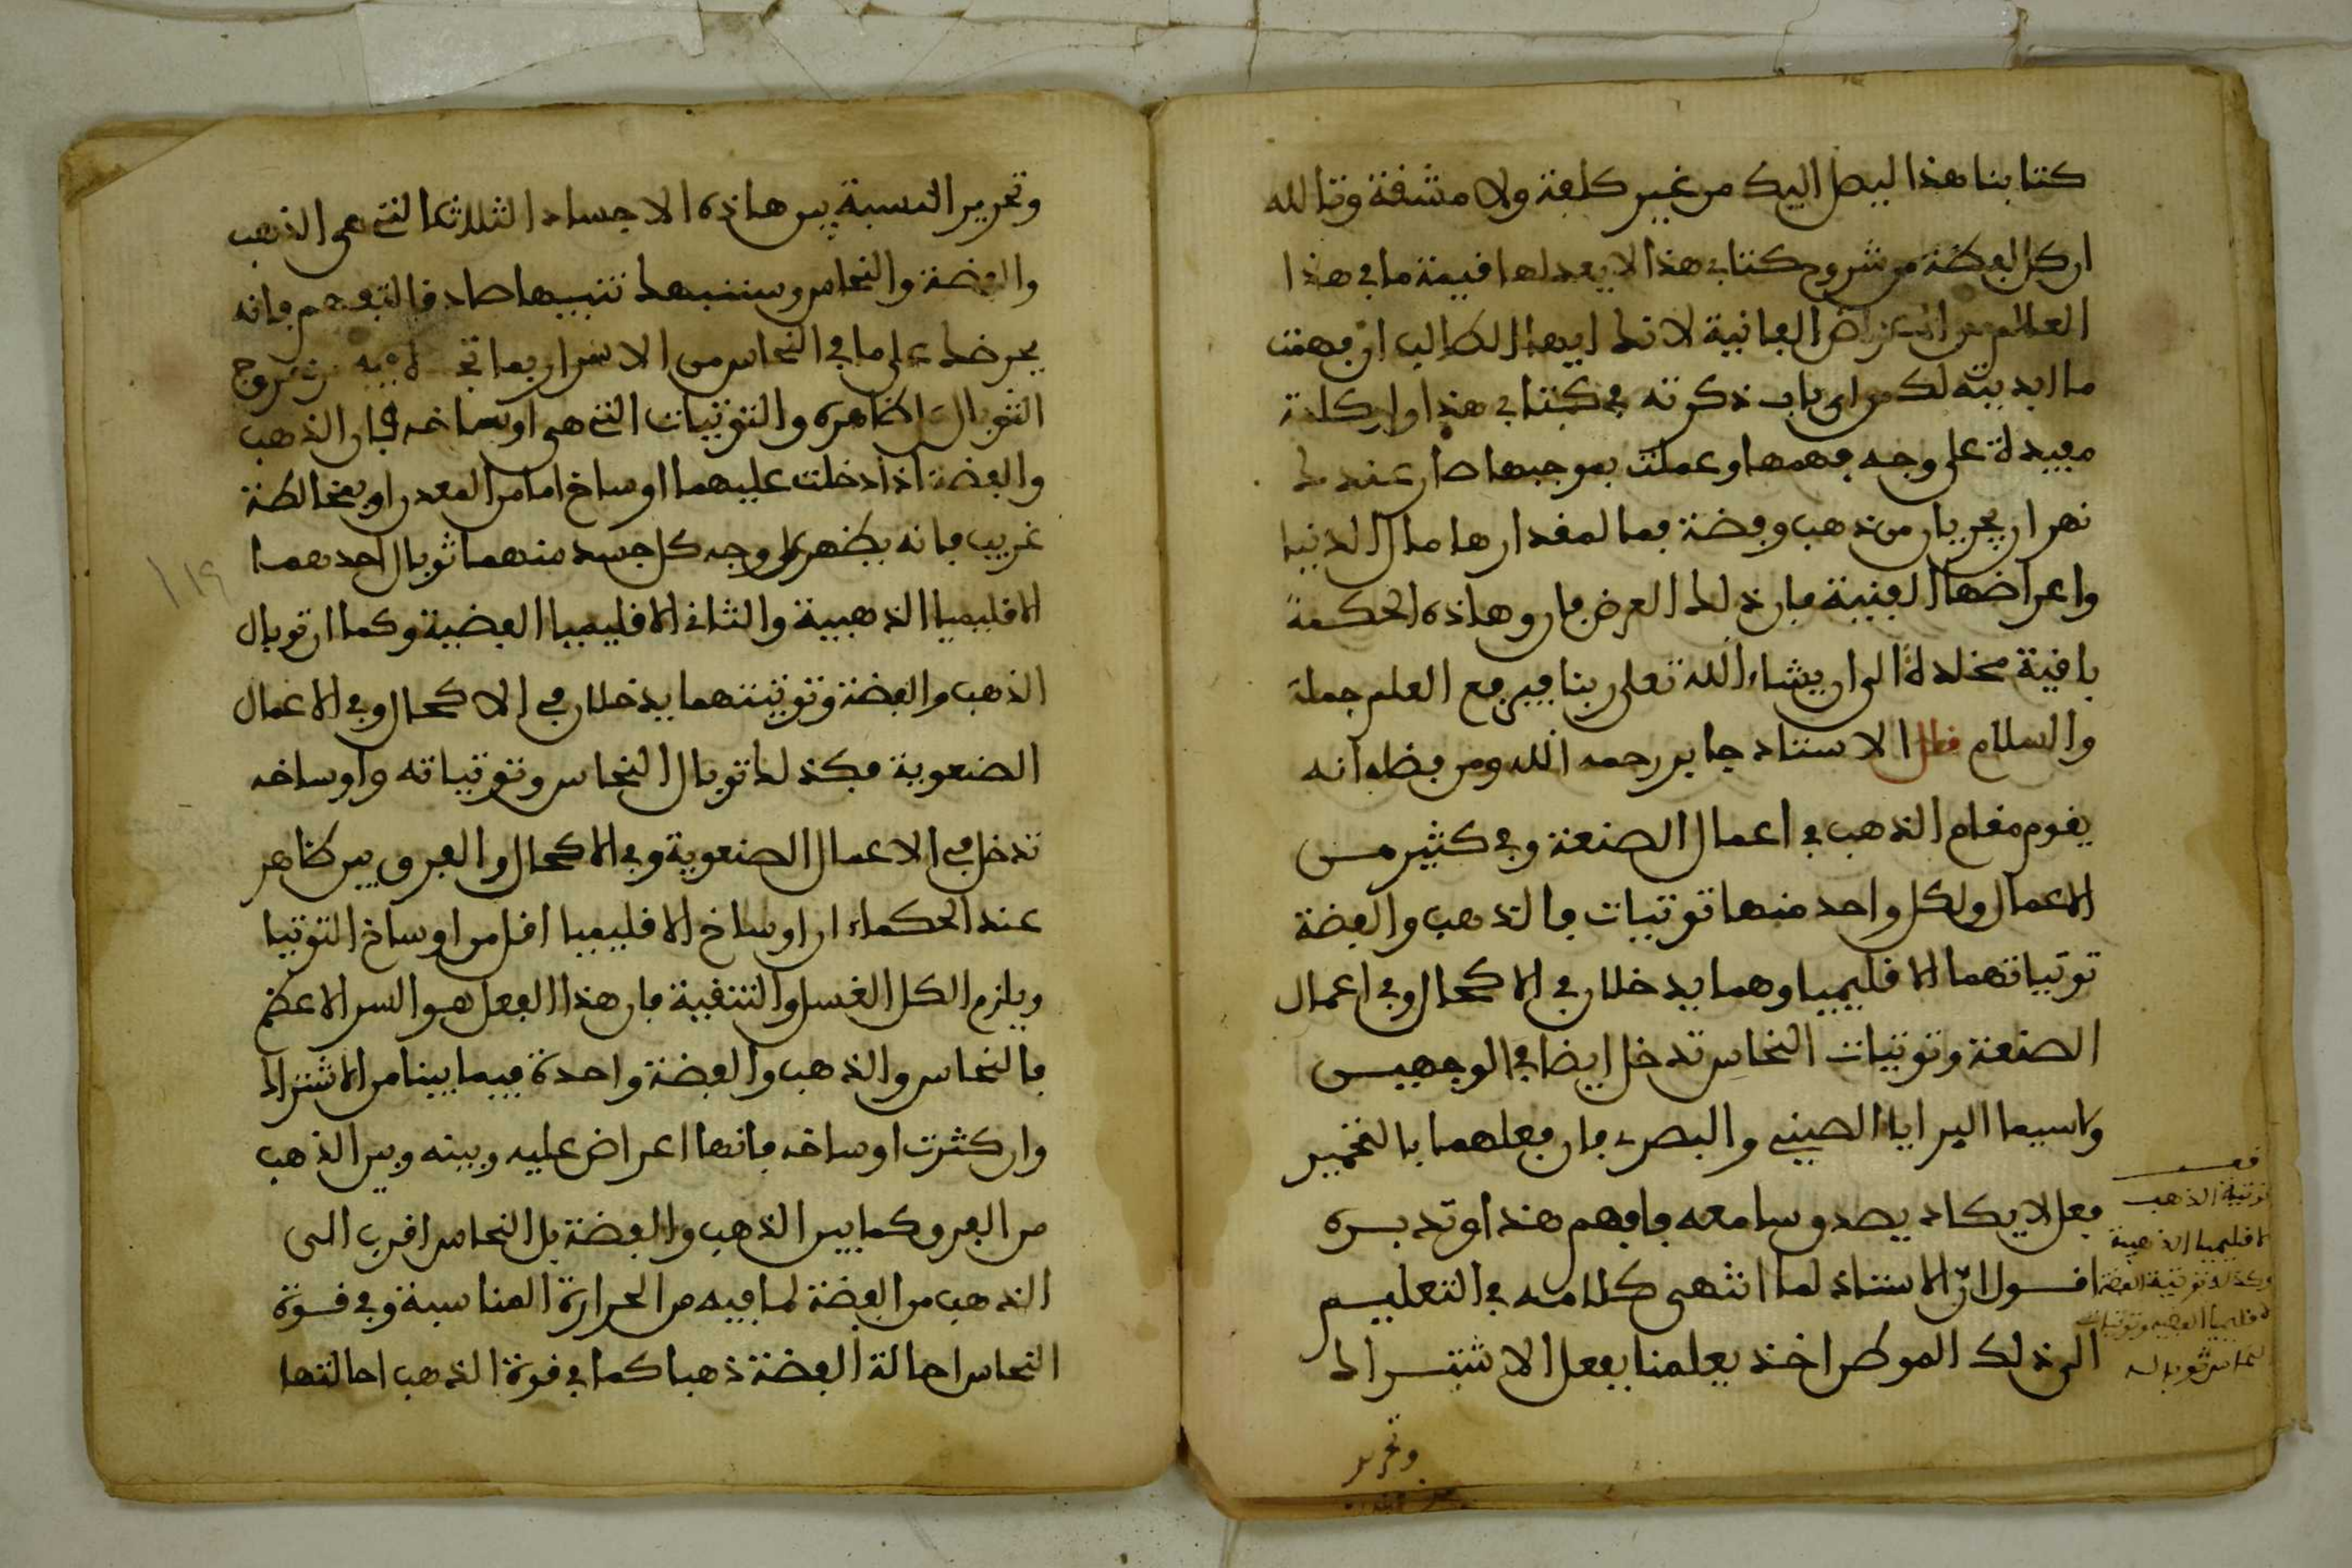 كتابنا هذا ليصل اليك من غير كلفة ولا مشقة وتالله
ان كل لفظة من شروح كتابي هذا لا يعدلها قيمة ما في هذا
العالم من الاعراض الفانية لانك ايها الطالب ان فهمت
ما ابديته لك من اي باب ذكرته في كتابي هذا واي كلمة
مفيدة على وجه فهمها وعملت بموجبها صار عندك
نهران يجريان من ذهب وفضة فما لمقدارها مال الدنيا
واعراضها الفنية فان ذلك العرض فان وهاذه الحكمة
باقية مخلدة الى ان يشاء الله تعلى ربنا فيرفع العلم جملة
والسلام قال الاستاد جابر رحمه الله ومن فضله انه
يقوم مقام الذهب في اعمال الصنعة وفي كثير من
الاعمال ولكل واحد منها توتيات فالذهب والفضة
توتياتهما الاقليميا وهما يدخلان في الاكحال وفي اعمال
الصنعة وتوتيات النحاس تدخل ايضا في الوجهين
ولاسيما البرايا الصيني والبصري فان فعلهما بالتخمير
فعل لا يكاد يصدق سامعه فافهم هذا وتدبره
اقول ان الاستاذ لما انتهى كلامه في التعليم
الى ذلك الموطن اخذ يعلمنا بفعل الاشتراك
توتية الذهب
الاقليميا الذهبية
وكذلك توتية الفضة
اقليميا الفضية وتوتيات
النحاس ثوباله
وتحرير
وتحرير النسبة بين هاذه الاجساد الثلاثة التي هي الذهب
والفضة والنحاس وسننبهك تنبيها صادقا لتفهم فانه
يحرضك على ما في النحاس من الاسرار بما
الثوبال الظاهرة والتوتيات التي هي اوساخه فان الذهب
والفضة اذا دخلت عليهما اوساخ اما من المعدن او بمخالطة
غريب فانه يظهر على وجه كل جسد منهما ثوبال احدهما
الاقليميا الذهبية والثاني الاقليميا الفضية وكما ان توبال
الذهب والفضة وتوتيتهما يدخلان في الاكحال وفي الاعمال
الصنعوية فكذلك توبال النحاس وتوتياته واوساخه
تدخل في الاعمال الصنعوية وفي الاكحال والفرق بين ظاهر
عند الحكماء ان اوساخ الاقليميا اقل من اوساخ التوتيا
ويلزم الكل الغسل والتنقية فان هذا الفعل هو السر الاعظم
فالنحاس والذهب والفضة واحدة فيما بينا من الاشتراك
وان كثرت اوساخه فانها اعراض عليه وبينه وبين الذهب
من الفرق كما بين الذهب والفضة بل النحاس اقرب الى
الذهب من الفضة لما فيه من الحرارة المناسبة وفي قوة
النحاس احالة الفضة ذهبا كما في قوة الذهب احالتها
١١٩